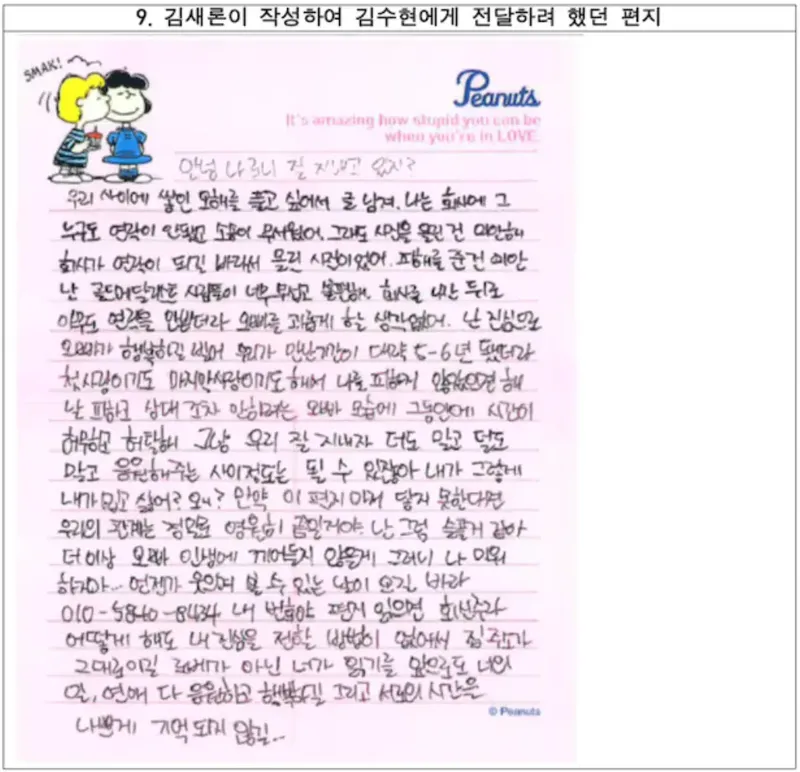 9. 김새론이 작성하여 김수현에게 전달하려 했던 편지
SMAK!
Peanuts
It's amazing how stupid you can be
when you're in LOVE.
안녕 나 잘 지내고 있지?
우리 사이에 쌓인 오해를 풀고 싶어서 글 남겨. 나는 회사에 그
누구도 연락이 안됐고 소송이 무서웠어. 그래도 사진을 올린 건 미안해
회사가 연락이 되길 바라서 올린 사진이었어. 피해를 준건 미안
난 골드메달리스트 사람들이 너무 무섭고 불편해. 회사를 나간 뒤로
아무도 연락을 안받더라 오빠를 괴롭게 할 생각없어. 난 진심으로
오빠가 행복하길 빌어 우리가 만난기간이 대략 5-6년 됐더라
첫사랑이기도 마지막사랑이기도 해서 나를 피하지 않았으면 해
날 피하고 상대 조차 안하려는 오빠 모습에 그동안에 시간이
허무하고 허탈해 그냥 우리 잘 지내자 더도 말고 덜도
말고 응원해주는 사이정도는 될 수 있잖아 내가 그렇게
내가 밉고 싫어? 왜? 만약 이 편지 마저 닿지 못한다면
우리의 관계는 정말로 영원히 끝일거야. 난 그럼 슬플거 같아
더 이상 오빠 인생에 끼어들지 않을게 그러니 나 미워
하지마... 언젠가 웃으며 볼 수 있는 날이 오길 바라
010-5840-8434 내 번호야 편지 읽으면 회신주라
어떻게 해도 내 진심을 전할 방법이 없어서 집 주소가
그대로이길 로베가 아닌 너가 읽기를 앞으로도 너의
일, 연애 다 응원하고 행복하길 그리고 서로의 시간을
나쁘게 기억 되지 않길...
© Peanuts